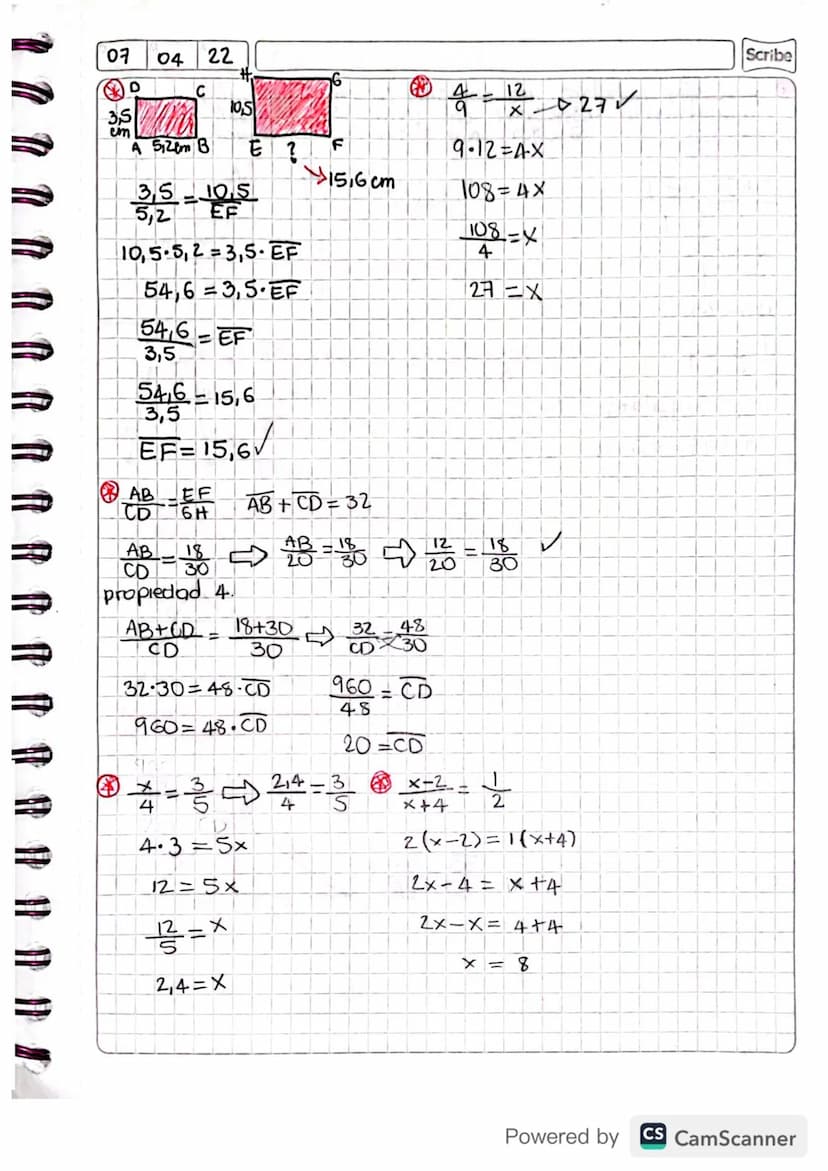 07 04 22
Scribe
D C
3,5 cm
A 5,2cm B
H G
10,5
E ? F
15,6 cm
3,5/5,2 = 10,5/EF
10,5·5,2 = 3,5·EF
54,6 = 3,5·EF
54,6/3,5 = EF
54,6/3,5 = 15,6
EF = 15,6 ✓
4/9 = 12/x → 27 ✓
9·12 = 4·x
108 = 4x
108/4 = x
27 = x
AB/CD = EF/GH AB + CD = 32
AB/CD = 18/30 ⇨ AB/20 = 18/30 ⇨ 12/20 = 18/30 ✓
propiedad 4.
AB+CD/CD = 18+30/30 ⇨ 32/CD = 48/30
32·30 = 48·CD
960 = 48·CD
960/48 = CD
20 = CD
x/4 = 3/5 ⇨ 2,4/4 = 3/5
4·3 = 5x
12 = 5x
12/5 = x
2,4 = x
x-2/x+4 = 1/2
2(x-2) = 1(x+4)
2x-4 = x+4
2x-x = 4+4
x = 8
Powered by CS CamScanner